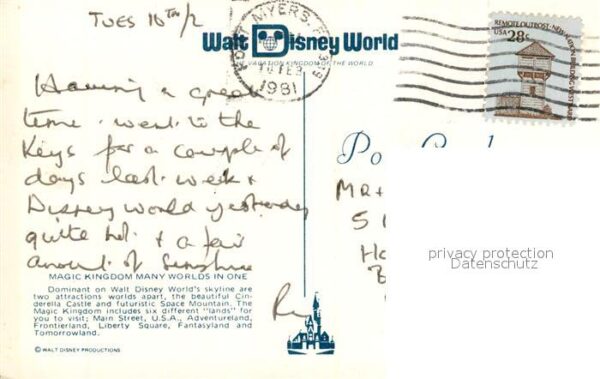 TUES 10TH/2
Walt Disney World
THE VACATION KINGDOM OF THE WORLD
FORT MYERS, FL
FEB
1981
REMOTE OUTPOST · NEW NATION BUILDING WESTWARD
USA 28c
Having a great
time. went to the
Keys for a couple of
days last week &
Disney world yesterday
quite hot & a fair
amount of Sunshine
MAGIC KINGDOM MANY WORLDS IN ONE
Dominant on Walt Disney World's skyline are
two attractions worlds apart, the beautiful Cin-
derella Castle and futuristic Space Mountain. The
Magic Kingdom includes six different "lands" for
you to visit; Main Street, U.S.A., Adventureland,
Frontierland, Liberty Square, Fantasyland and
Tomorrowland.
© WALT DISNEY PRODUCTIONS
Po
MR +
5
Ho
privacy protection
Datenschutz